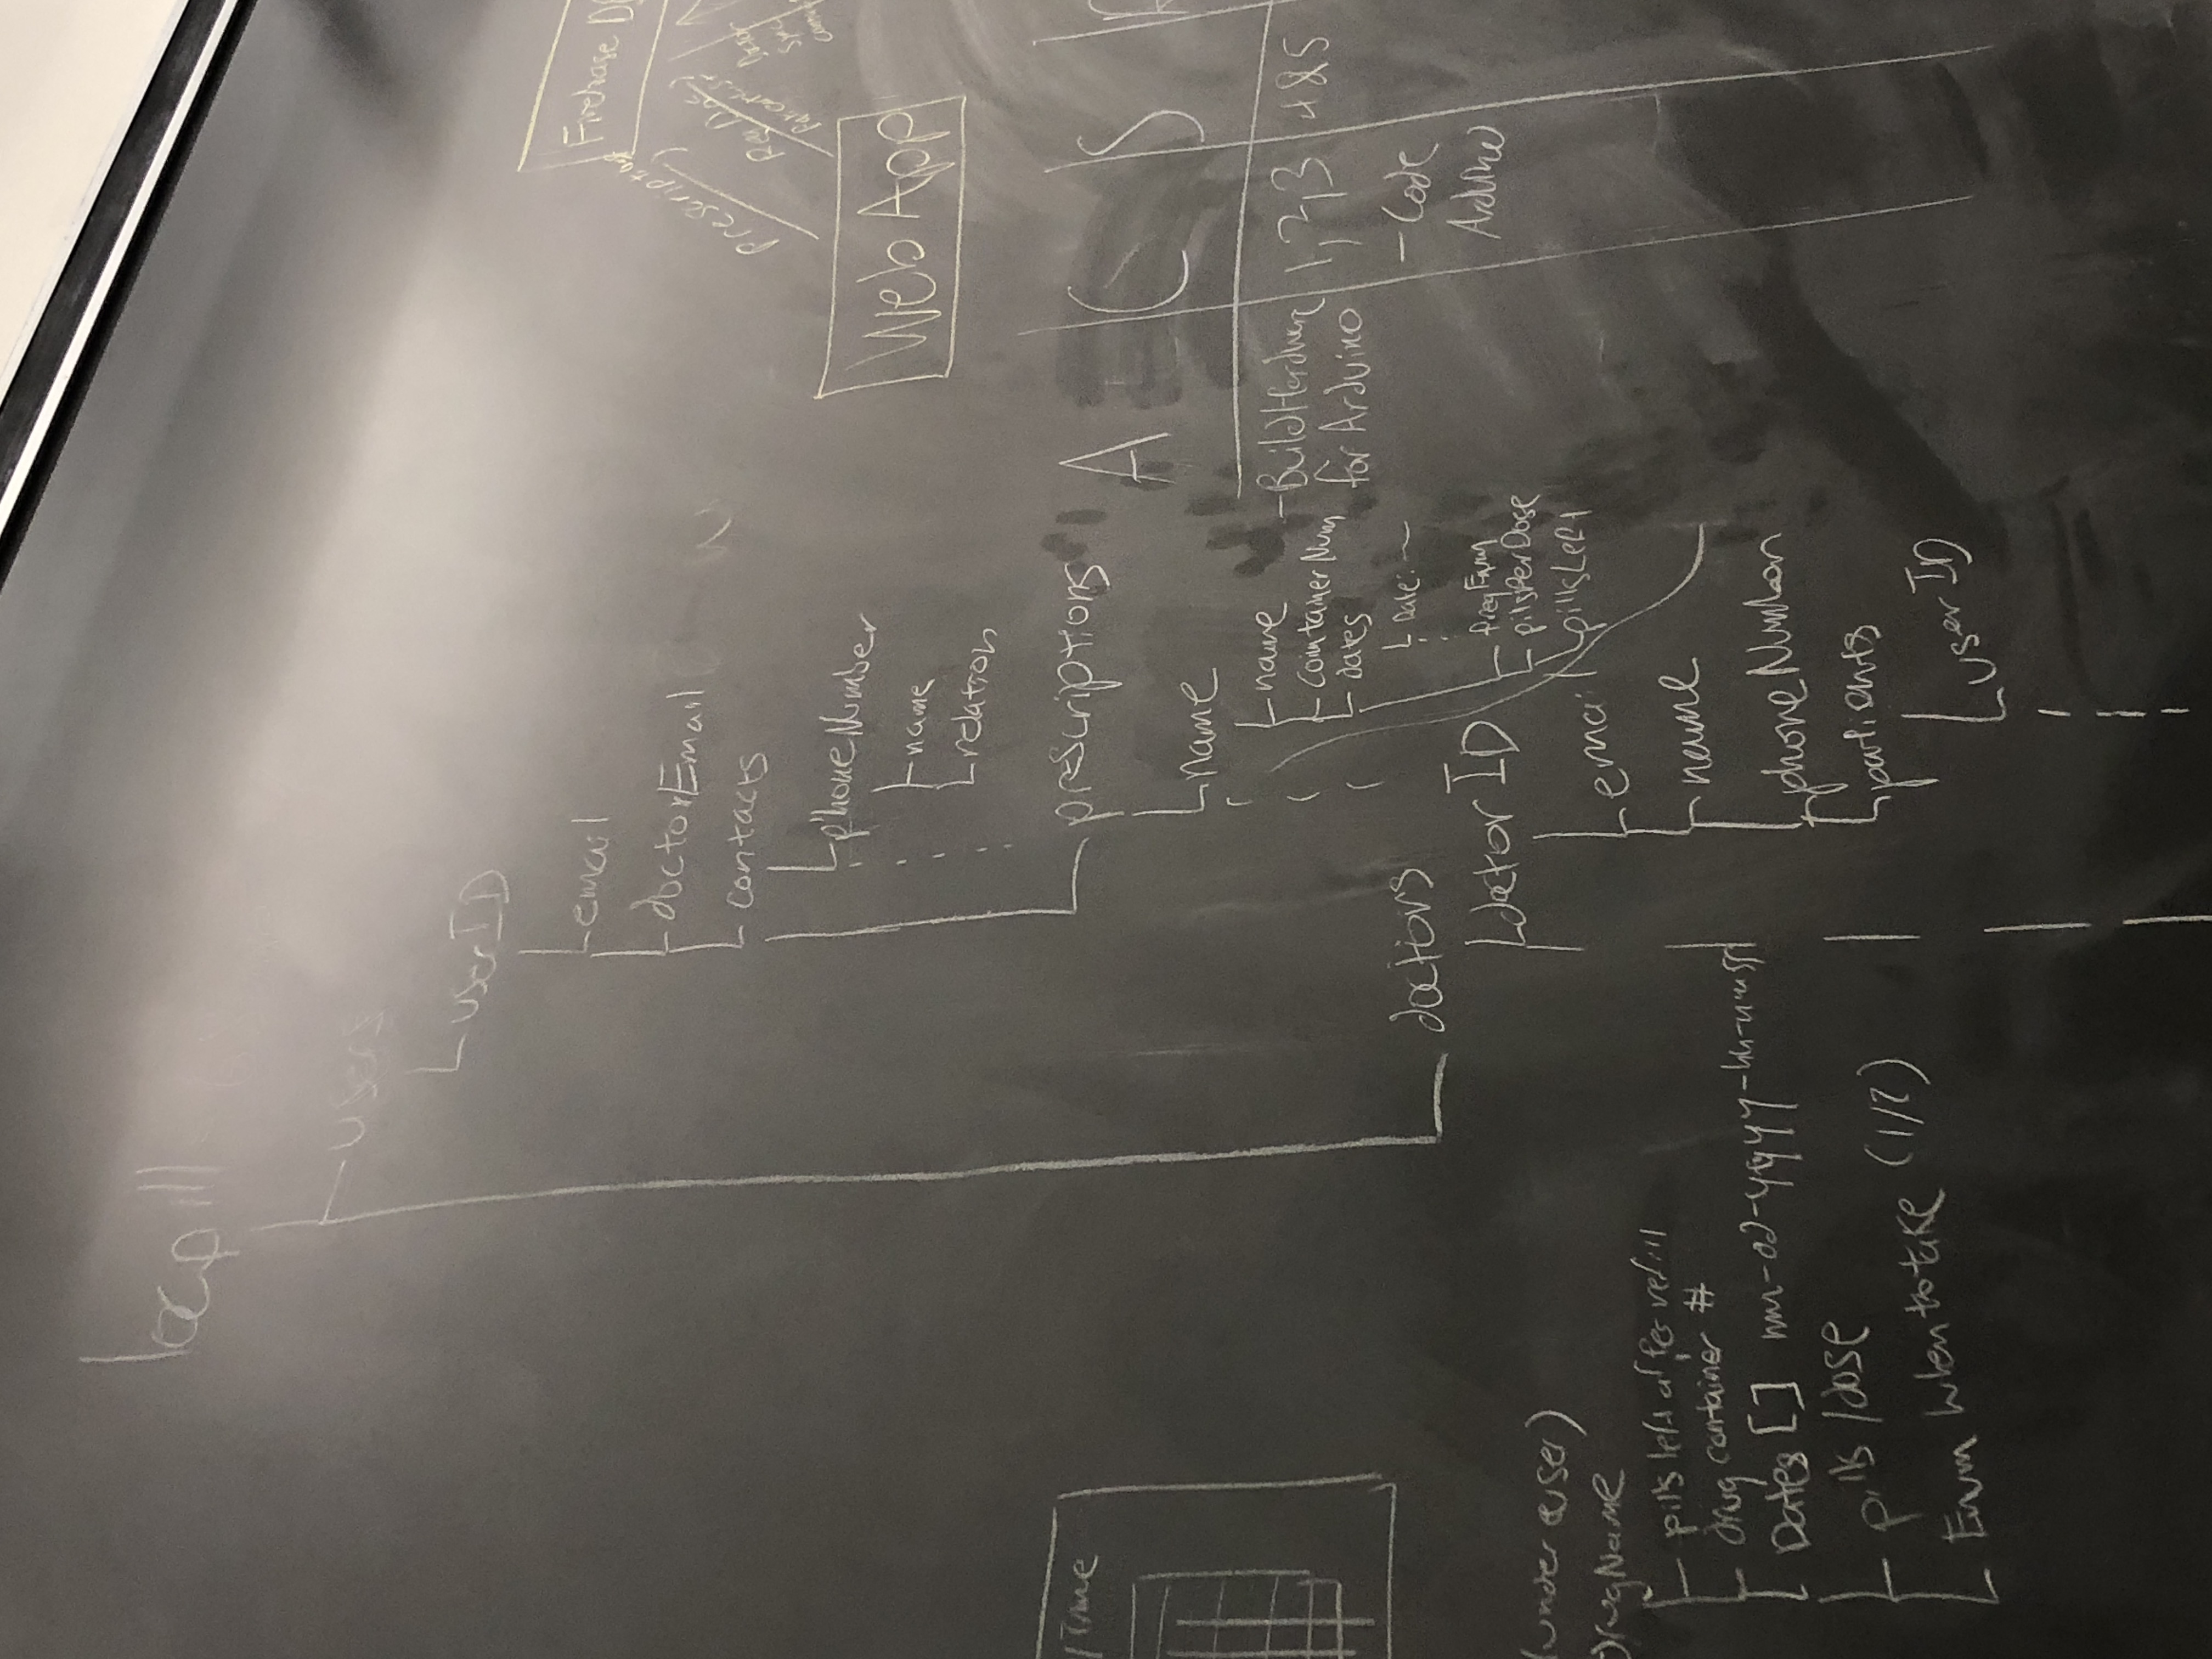 Web App
apill
users
userID
email
doctorEmail
contacts
phoneNumber
name
relation
prescriptions
name
name
containerNum
dates
Date: ~
pillsPerDose
pillsLeft
doctors
doctorID
email
name
phoneNumber
patients
userID
A
C
S
-Build Hardware
for Arduino
1,2,3
- Code
Arduino
4&5
Time
(under user)
DrugName
pills left after refill
drug container #
Dates [] mm-dd-yyyy-hh-mm-ss
pills/dose
Enum When to take (1/2)